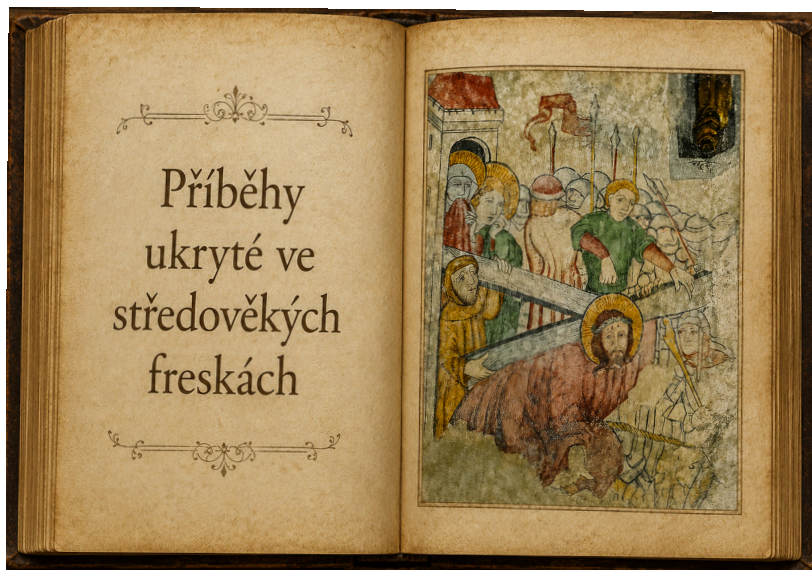 Příběhy
ukryté ve
středověkých
freskách